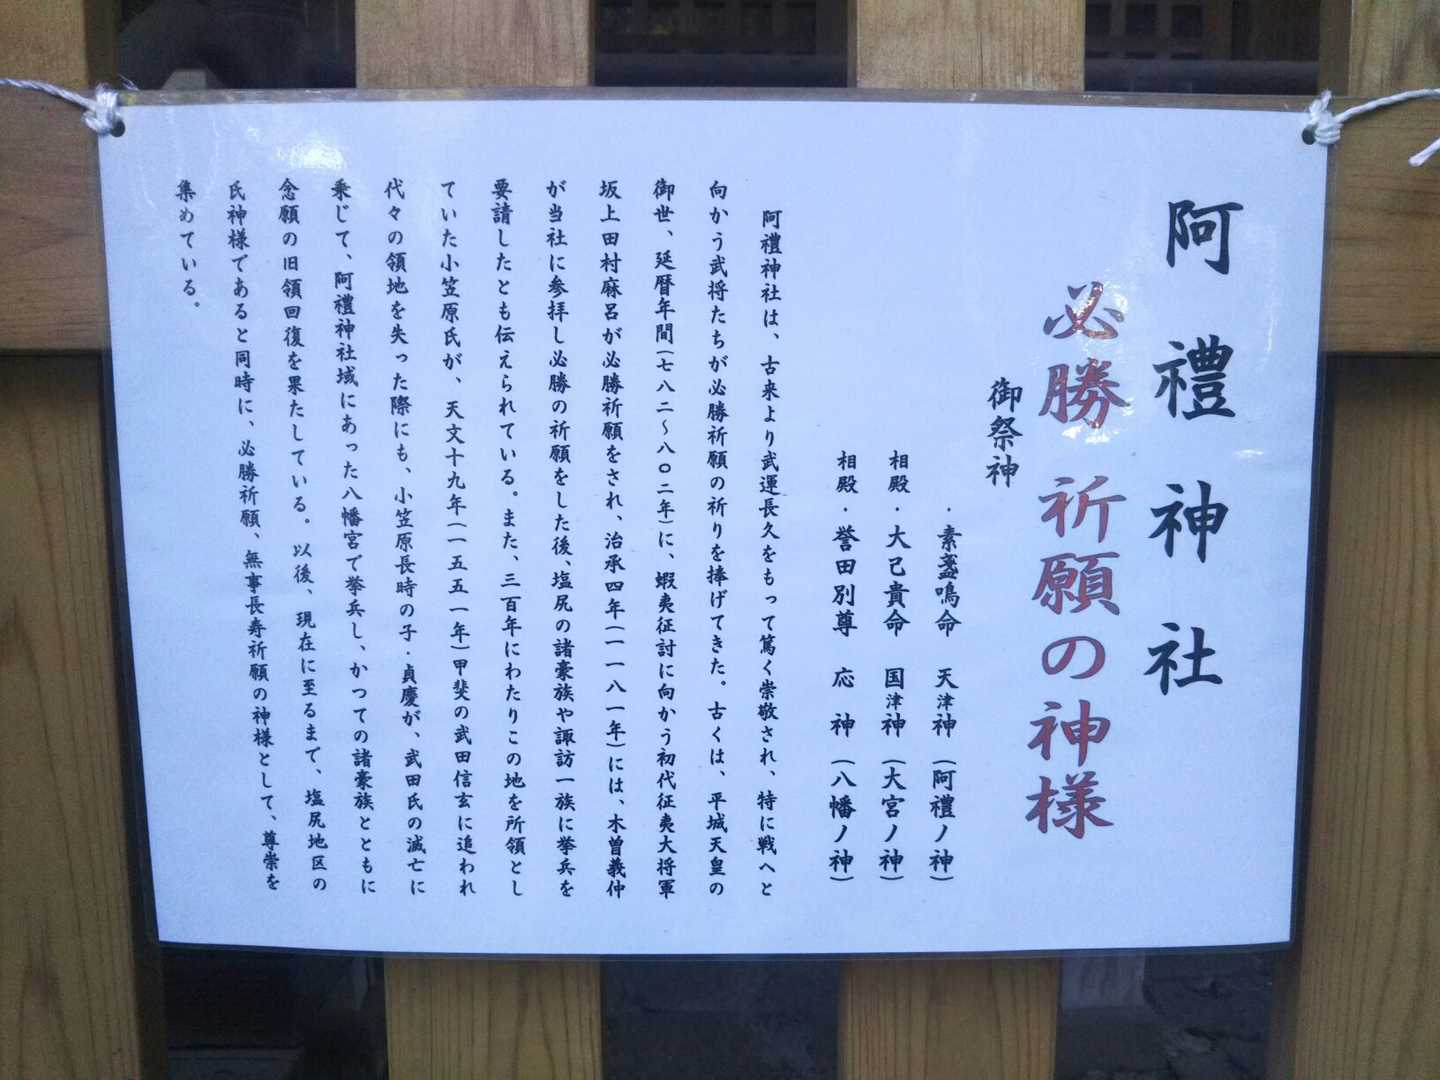 阿禮神社
必勝祈願の神様
御祭神
・素盞嗚命 天津神(阿禮ノ神)
相殿・大己貴命 国津神(大宮ノ神)
相殿・誉田別尊 応神(八幡ノ神)
阿禮神社は、古来より武運長久をもって篤く崇敬され、特に戦へと
向かう武将たちが必勝祈願の祈りを捧げてきた。古くは、平城天皇の
御世、延暦年間(七八二～八〇二年)に、蝦夷征討に向かう初代征夷大将軍
坂上田村麻呂が必勝祈願をされ、治承四年(一一八一年)には、木曽義仲
が当社に参拝し必勝の祈願をした後、塩尻の諸豪族や諏訪一族に挙兵を
要請したとも伝えられている。また、三百年にわたりこの地を所領とし
ていた小笠原氏が、天文十九年(一五五一年)甲斐の武田信玄に追われ
代々の領地を失った際にも、小笠原長時の子・貞慶が、武田氏の滅亡に
乗じて、阿禮神社域にあった八幡宮で挙兵し、かつての諸豪族とともに
念願の旧領回復を果たしている。以後、現在に至るまで、塩尻地区の
氏神様であると同時に、必勝祈願、無事長寿祈願の神様として、尊崇を
集めている。